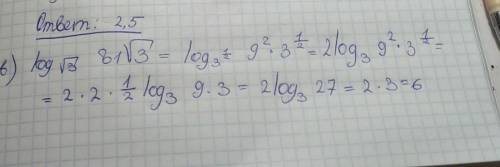 Ответ: 2,5
в) log_{√3} 81√3 = log_{3^{1/2}} 9² · 3^{1/2} = 2log₃ 9² · 3^{1/2} =
= 2 · 2 · 1/2 log₃ 9 · 3 = 2log₃ 27 = 2 · 3 = 6